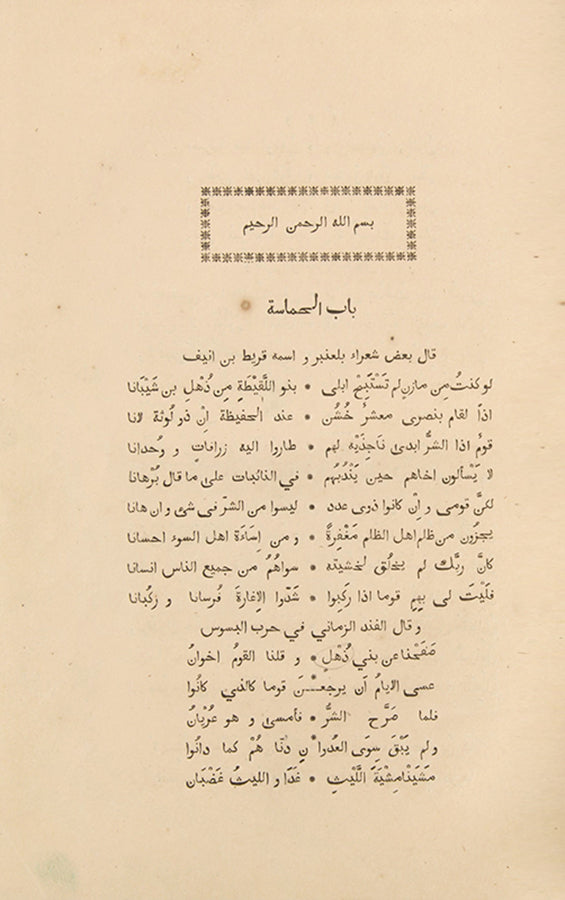 بسم الله الرحمن الرحيم
باب الحماسة
قال بعض شعراء بلعنبر و اسمه قريط بن انيف
لو كنتُ مِن مازنٍ لم تَسْتَبِحْ ابلى * بنو اللَّقِيْطَةِ مِن ذُهْلِ بن شَيْبَانا
اذاً لقام بنصرى معشرٌ خُشُن * عند الحفيظة اِنْ ذو لُوثة لانا
قومٌ اذا الشرُّ ابدى ناجذَيْه لهم * طاروا اليه زرافاتٍ و وُحدانا
لا يَسْألون اخاهم حين يَنْدُبُهم * في النائبات على ما قال بُرْهانا
لكنَّ قومى و اِنْ كانوا ذوى عدد * ليسوا من الشرّ فى شئ و ان هانا
يجزون من ظلم اهل الظلم مَغْفِرةً * و من اِسَاءَة اهل السوء احسانا
كانَّ ربَّك لم يخلُق لخشيته * سواهُمُ من جميع الناس انسانا
فلَيْتَ لى بِهِم قوما اذا ركبوا * شَدّوا الاِغارةَ فُرسانا و ركُبانا
و قال الفند الزماني في حرب البسوس
صَفَحْنا عن بني ذُهْلٍ * و قلنا القومُ اخوانُ
عسى الايامُ اَن يرجعـــْـنَ قوما كالذي كانُوا
فلما صَرَّح الشرُّ * فأمسى و هو عُرْيانُ
ولم يَبْقَ سِوَى العدوا*نِ دنّا هُمْ كما دانُوا
مَشَيْنا مِشْيَةَ اللَّيْثِ * غَدَا و الليثُ غَضْبَان